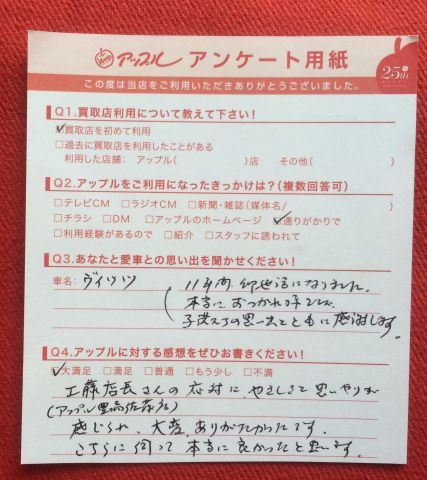 アップル アンケート用紙
25th
この度は当店をご利用いただきありがとうございました。
Q1.買取店利用について教えて下さい!
☑買取店を初めて利用
□過去に買取店を利用したことがある
利用した店舗: アップル( )店 その他( )
Q2.アップルをご利用になったきっかけは?(複数回答可)
□テレビCM □ラジオCM □新聞・雑誌(媒体名/ )
□チラシ □DM □アップルのホームページ ☑通りがかりで
□利用経験があるので □紹介 □スタッフに誘われて
Q3.あなたと愛車との思い出を聞かせてください!
車名: ヴィッツ
11年間、御世話になりました。
本当におつかれ様でした。
子供との思い出とともに感謝します。
Q4.アップルに対する感想をぜひお書きください!
☑大満足 □満足 □普通 □もう少し □不満
工藤店長さんの応対に、やさしさと思いやりが
(アップル 店)
感じられ、大変、ありがたかったです。
こちらに伺って本当に良かったと思います。